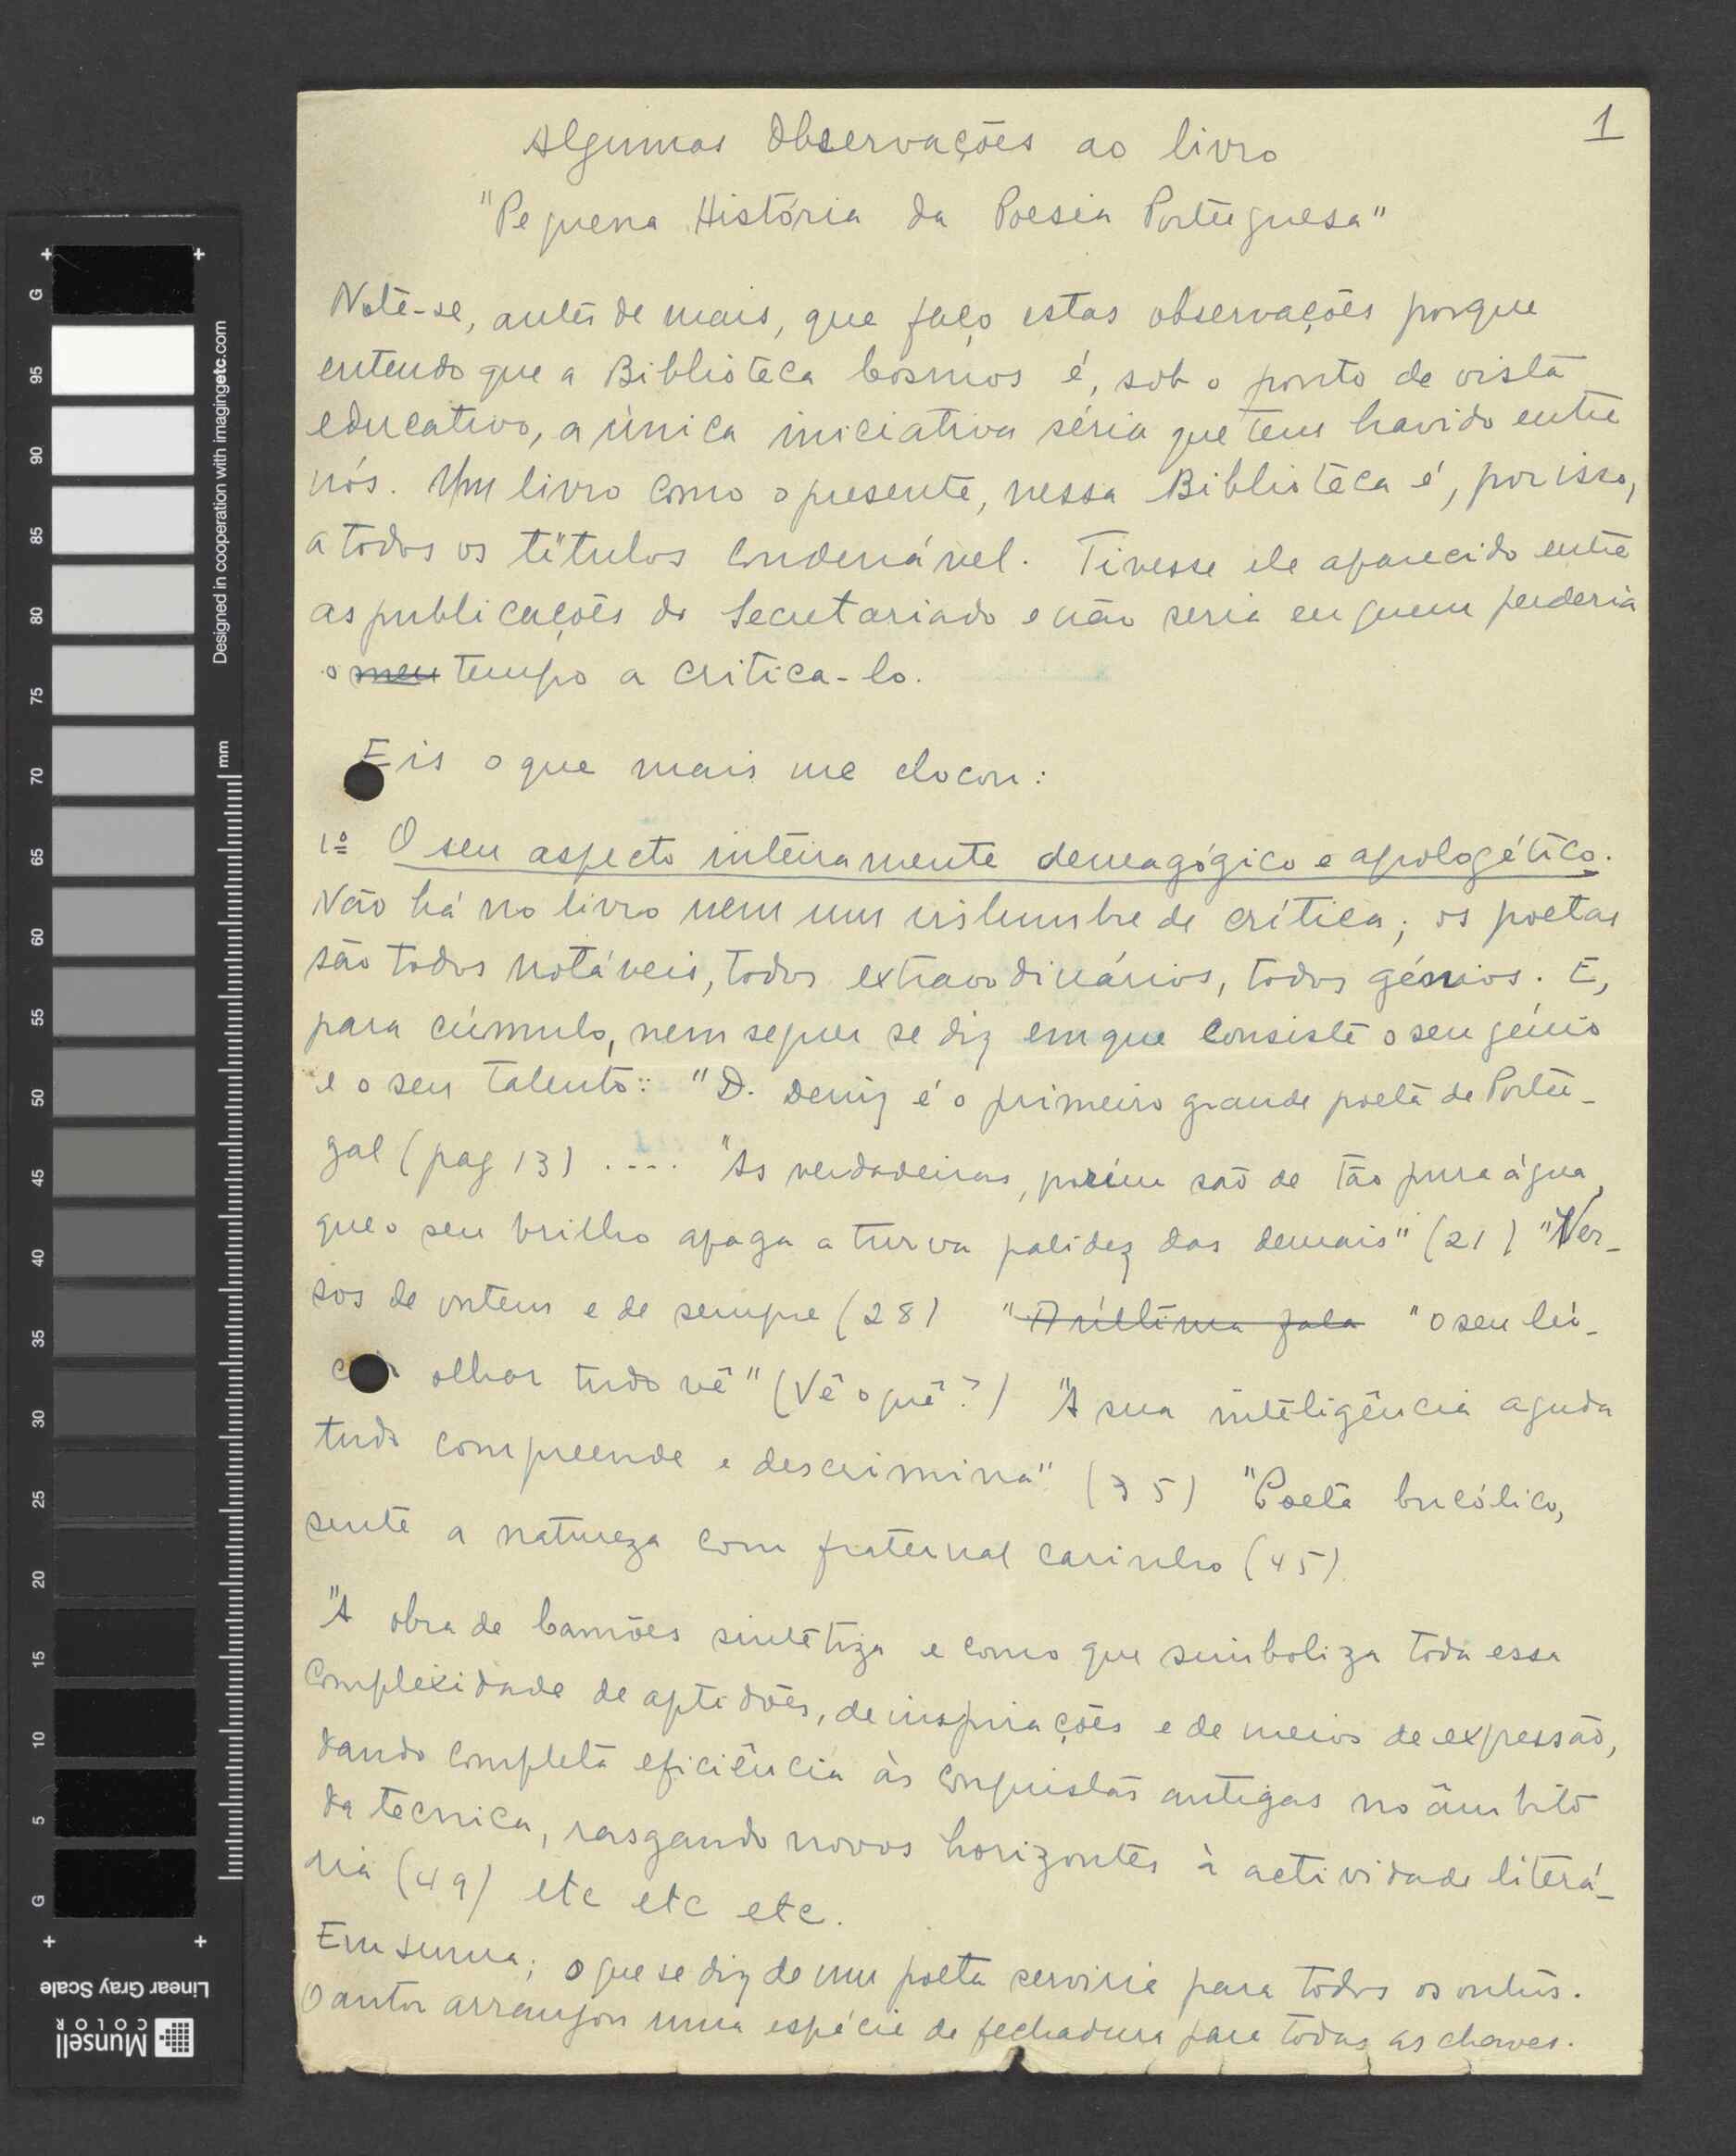 1
Algumas Observações ao livro
"Pequena História da Poesia Portuguesa"
Note-se, antes de mais, que faço estas observações porque
entendo que a Biblioteca Cosmos é, sob o ponto de vista
educativo, a única iniciativa séria que tem havido entre
nós. Um livro como o presente, nessa Biblioteca é, por isso,
a todos os títulos condenável. Tivesse ele aparecido entre
as publicações do Secretariado e não seria eu quem perderia
o meu tempo a critica-lo.
Eis o que mais me chocou:
1º O seu aspecto inteiramente demagógico e apologético.
Não há no livro nem um vislumbre de crítica; os poetas
são todos notáveis, todos extraordinários, todos génios. E,
para cúmulo, nem sequer se diz em que consiste o seu génio
e o seu talento: "D. Deniz é o primeiro grande poeta de Portu-
gal (pag 13) .... "As verdadeiras, porém são de tão pura água,
que o seu brilho apaga a turva palidez das demais" (21) "Ver-
sos de ontem e de sempre (28) "A última fala "o seu lú-
cido olhar tudo vê" (Vê o quê?) "A sua inteligência aguda
tudo compreende e descrimina" (35) "Poeta bucólico,
sente a natureza com fraternal carinho (45).
"A obra de Camões sintetiza e como que simboliza toda essa
complexidade de aptidões, de inspirações e de meios de expressão,
dando completa eficiência às conquistas antigas no âmbito
da tecnica, rasgando novos horizontes à actividade literá-
ria (49) etc etc etc.
Em suma; o que se diz de um poeta serviria para todos os outros.
O autor arranjou uma espécie de fechadura para todas as chaves.
Designed in cooperation with imagingetc.com
mm
G
95
90
85
80
75
70
65
60
55
50
45
40
35
30
25
20
15
10
5
G
Linear Gray Scale
Munsell
COLOR